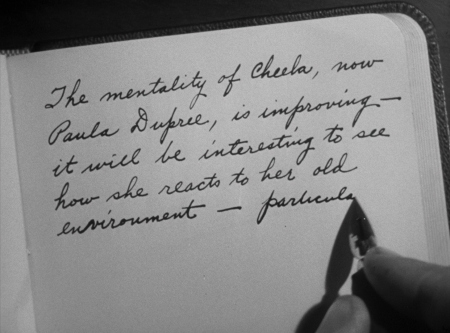 The mentality of Cheela, now
Paula Dupree, is improving—
it will be interesting to see
how she reacts to her old
environment — particula